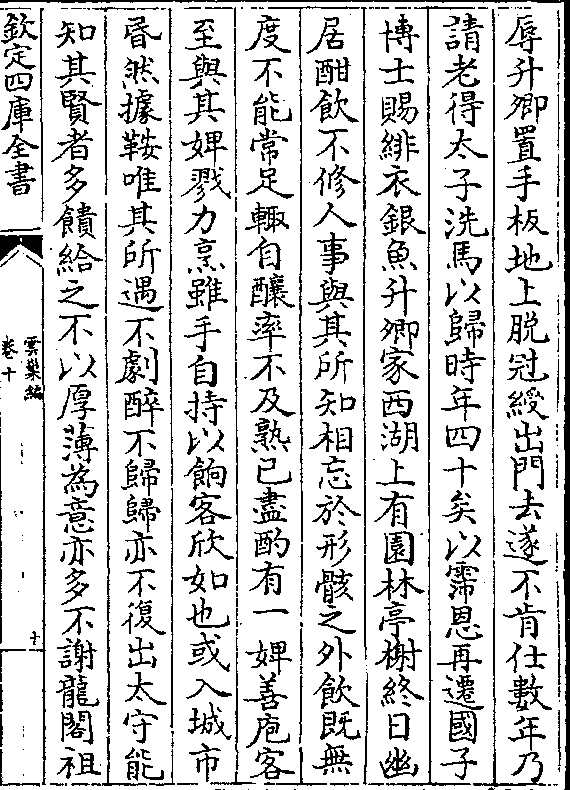 辱升卿置手板地上脫冠綬出門去遂不肯仕數年乃
請老得太子洗馬以歸時年四十矣以霈恩再遷國子
博士賜緋衣銀魚升卿家西湖上有園林亭榭終日幽
居酣飲不修人事與其所知相忘於形骸之外飲既無
度不能常足輙自釀率不及熟已盡酌有一婢善庖客
至與其婢戮力烹雖手自持以餉客欣如也或入城市
昏然據鞍唯其所遇不劇醉不歸歸亦不復出太守能
知其賢者多饋給之不以厚薄為意亦多不謝龍閣祖
欽定四庫全書
雲巢編
卷十
十